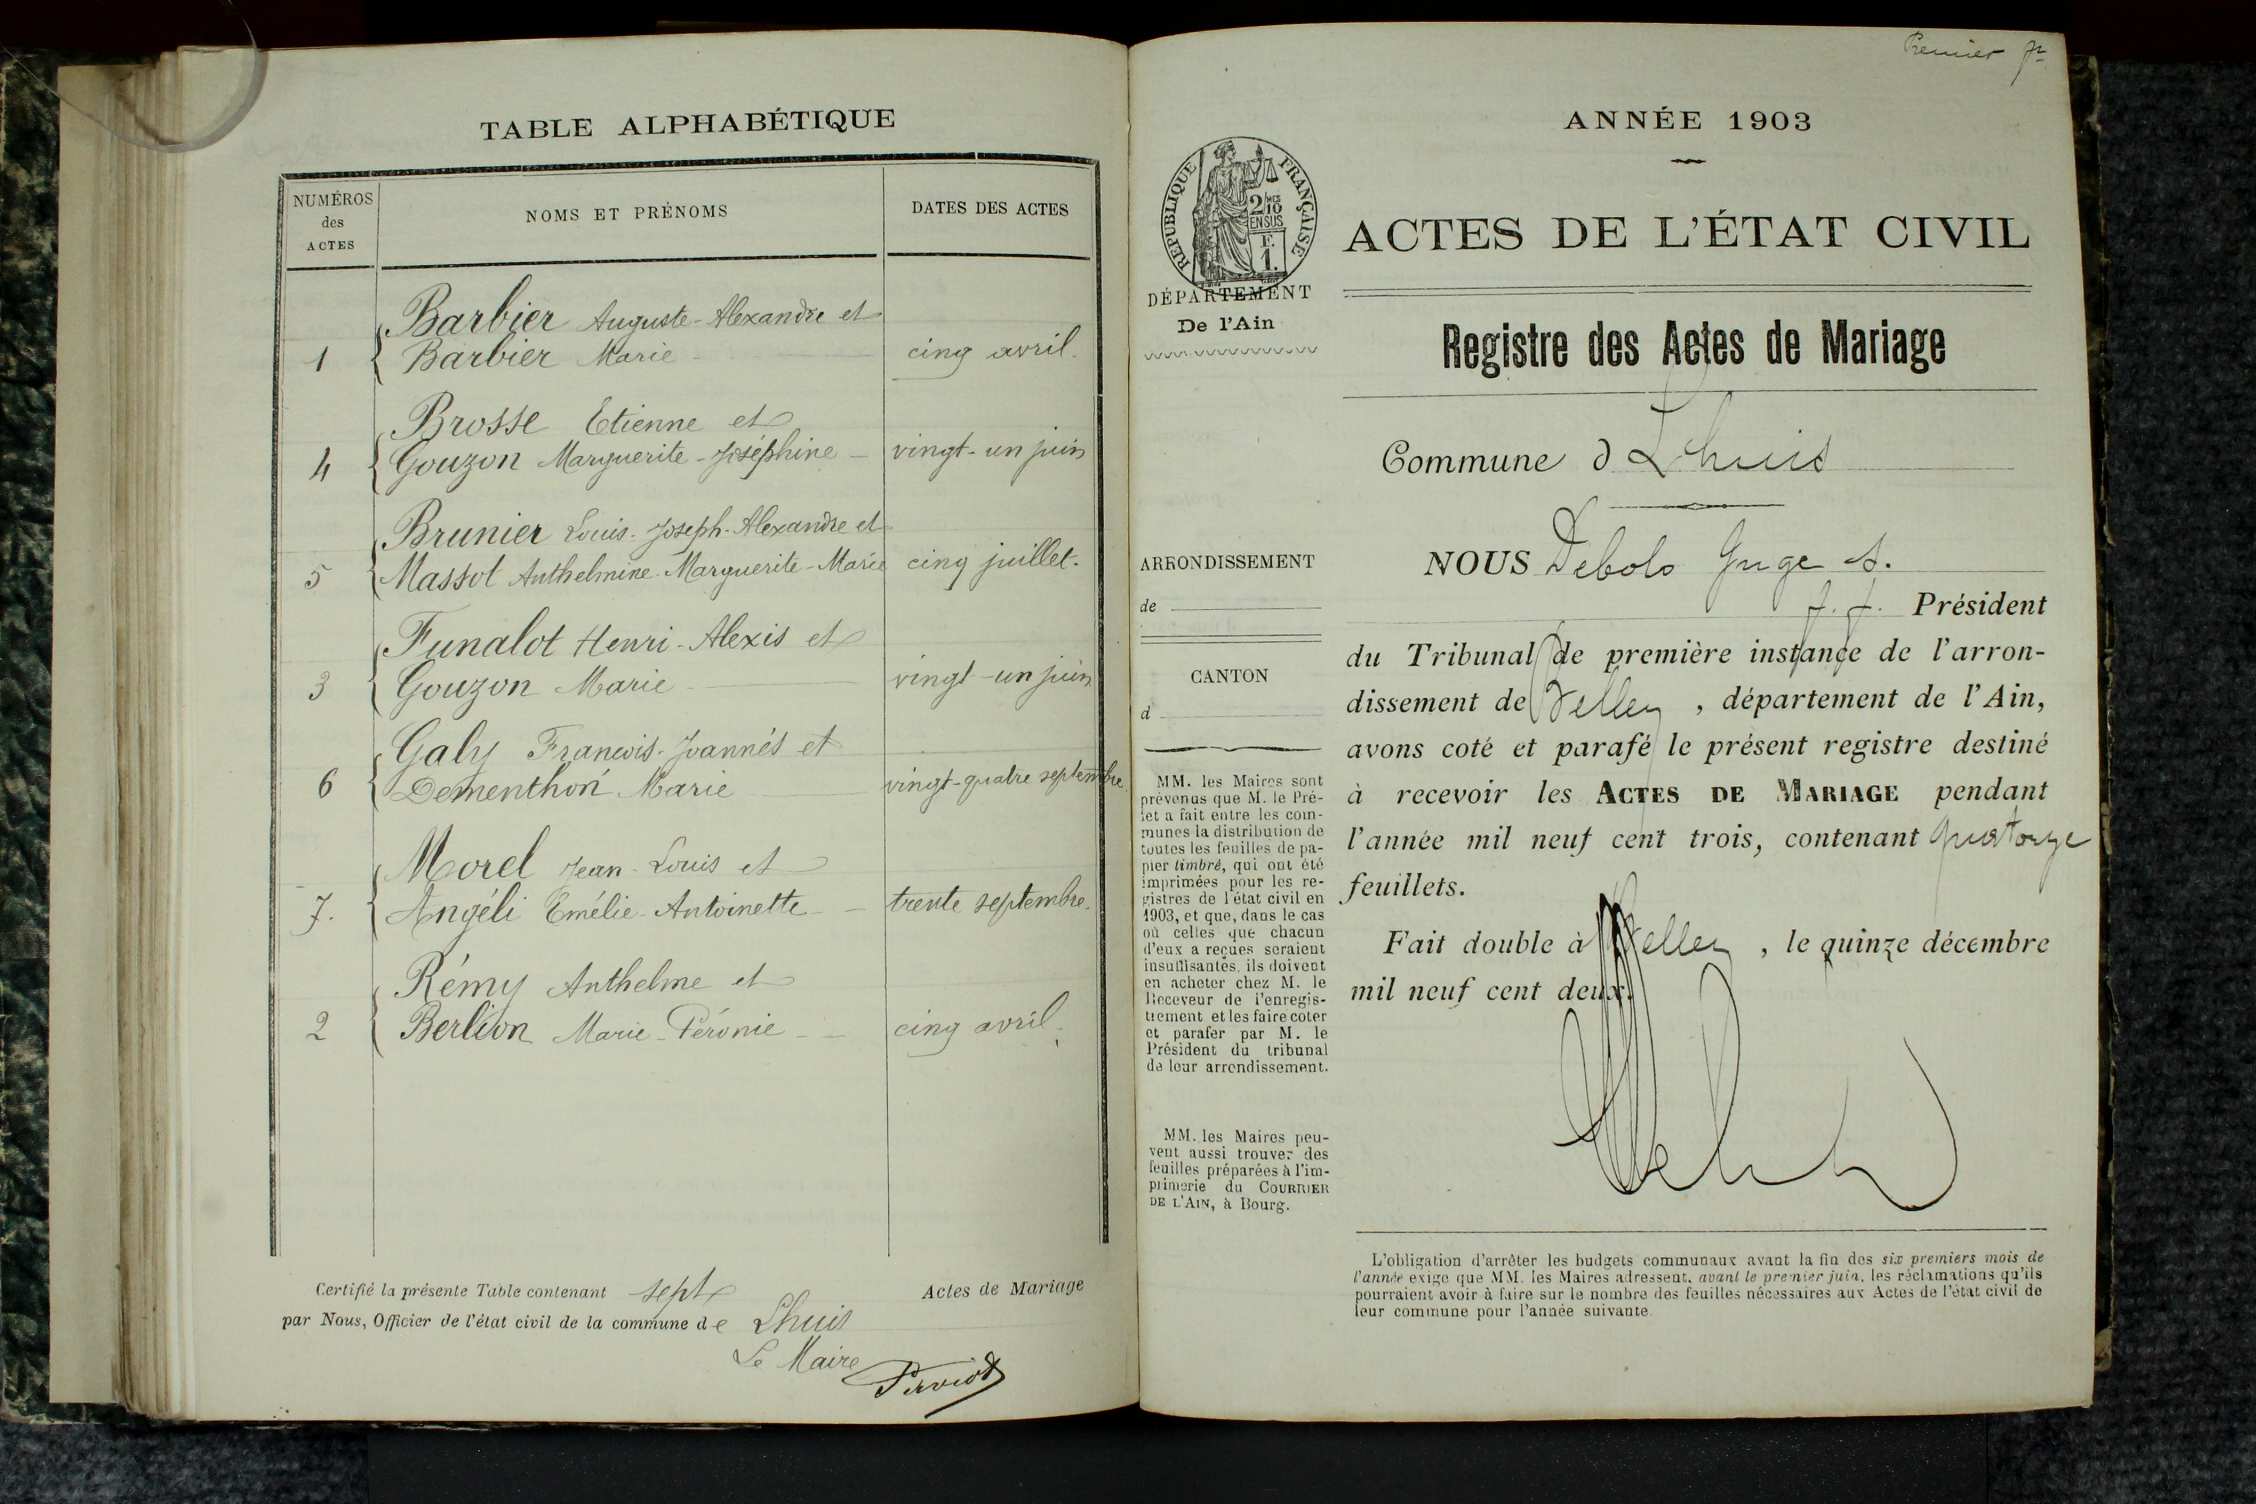 TABLE ALPHABÉTIQUE
NUMÉROS
des
ACTES
NOMS ET PRÉNOMS
DATES DES ACTES
Barbier Auguste-Alexandre et
1 Barbier Marie - cinq avril.
Brosse Etienne et
4 Gouzon Marguerite-Joséphine - vingt-un juin
Brunier Louis-Joseph-Alexandre et
5 Massot Anthelmine-Marguerite-Marie cinq juillet.
Funalot Henri-Alexis et
3 Gouzon Marie - vingt-un juin
Galy François-Joannès et
6 Dementhon Marie vingt-quatre septembre
Morel Jean-Louis et
7. Angéli Emélie-Antoinette - trente septembre.
Rémy Anthelme et
2 Berlion Marie-Péronie - cinq avril.
Certifié la présente Table contenant sept Actes de Mariage
par Nous, Officier de l'état civil de la commune de Lhuis
Le Maire
Premier
ANNÉE 1903
RÉPUBLIQUE FRANÇAISE
2/10
EN SUS
F.
1.
DÉPARTEMENT
De l'Ain
ACTES DE L'ÉTAT CIVIL
Registre des Actes de Mariage
Commune d Lhuis
ARRONDISSEMENT
de
CANTON
d
MM. les Maires sont
prévenus que M. le Pré-
fet a fait entre les com-
munes la distribution de
toutes les feuilles de pa-
pier timbré, qui ont été
imprimées pour les re-
gistres de l'état civil en
1903, et que, dans le cas
où celles que chacun
d'eux a reçues seraient
insuffisantes, ils doivent
en acheter chez M. le
Receveur de l'enregis-
trement et les faire coter
et parafer par M. le
Président du tribunal
de leur arrondissement.
MM. les Maires peu-
vent aussi trouver des
feuilles préparées à l'im-
primerie du COURRIER
DE L'AIN, à Bourg.
NOUS Debolo Juge s.
f. f. Président
du Tribunal de première instance de l'arron-
dissement de Belley , département de l'Ain,
avons coté et parafé le présent registre destiné
à recevoir les ACTES DE MARIAGE pendant
l'année mil neuf cent trois, contenant quatorze
feuillets.
Fait double à Belley , le quinze décembre
mil neuf cent deux.
L'obligation d'arrêter les budgets communaux avant la fin des six premiers mois de
l'année exige que MM. les Maires adressent, avant le premier juin, les réclamations qu'ils
pourraient avoir à faire sur le nombre des feuilles nécessaires aux Actes de l'état civil de
leur commune pour l'année suivante.